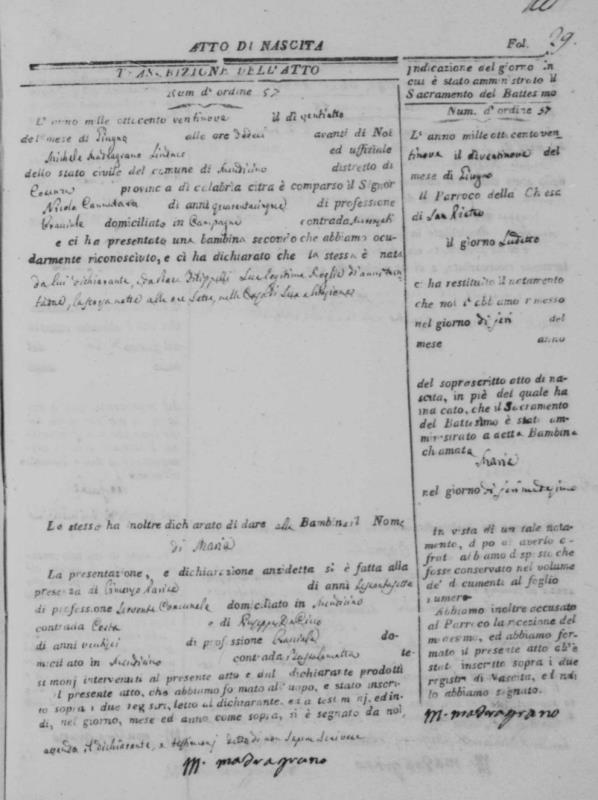 ATTO DI NASCITA
Fol. 29.
TRASCRIZIONE DELL'ATTO
Num d'ordine 57
L'anno mille ottocento ventinove il di ventiotto
del mese di Giugno alle ore dodeci avanti di Noi
Michele Madragrano Sindaco ed uffiziale
dello stato civile del comune di Mendicino distretto di
Cosenza provincia di calabria citra è comparso il Signor
Nicola di anni quarantacinque di professione
domiciliato in Campagna contrada
e ci ha presentato una bambina secondo che abbiamo ocu-
darmente riconosciuto, e ci hà dichiarato che la stessa è nata
da lui dichiarante, Sua legitima Moglie di anni
alle ore nella Casa di Sua abitazione
Lo stesso ha inoltre dicharato di dare alla Bambina il Nome
di Maria
La presentazione, e dichiarazione anzidetta si è fatta alla
presenza di di anni
di professione Servente Comunale domiciliato in Mendicino
contrada Costa e di Giuseppe
di anni di professione do-
miciliato in Mendicino contrada te-
stimonj intervenuti al presente atto e dal dichiarante prodotti
Il presente atto, che abbiamo formato all'uopo, e stato inscri-
to sopra i due registri, letto al dichiarante, ed a testimonj, ed in-
di, nel giorno, mese ed anno come sopra, si è segnato da noi,
avendo il dichiarante, e testimonj detto di non Sapere Scrivere
M. madragrano
Indicazione del giorno in
cui è stato amministrato il
Sacramento del Battesimo
Num. d'ordine 57
L'anno mille ottocento ven-
tinove il di ventinove del
mese di Giugno
il Parroco della Chiesa
di San Pietro
il giorno
ci ha restituito il notamento
che noi l'abbiamo rimesso
nel giorno di jeri del
mese anno
del soprascritto atto di na-
scita, in piè del quale ha
indicato, che il Sacramento
del Battesimo è stato am-
ministrato a detta Bambina
chiamata
Maria
nel giorno di jeri medesimo
In vista di un tale nota-
mento, dopo averlo ci-
frato abbiamo disposto che
fosse conservato nel volume
de' documenti al foglio
numero
Abbiamo inoltre accusato
al Parroco la ricezione del
medesimo, ed abbiamo for-
mato il presente atto ch'è
stato inscritto sopra i due
registri di Nascita, ed indi
lo abbiamo segnato.
M. madragrano